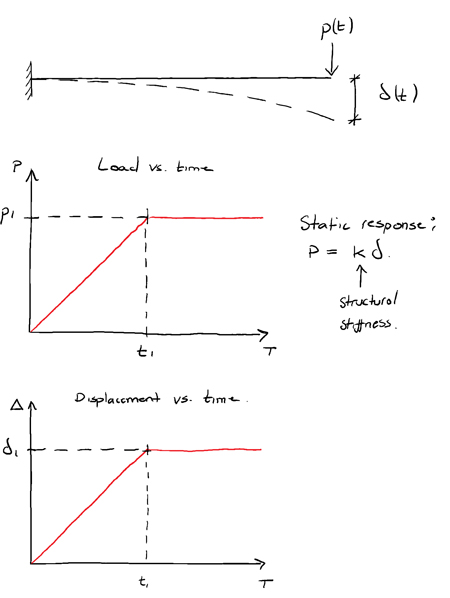 P(t)
δ(t)
P
Load vs. time
P1
Static response:
P = kδ.
structural
stiffness.
t1
T
Δ
Displacement vs. time.
δ1
t1
T